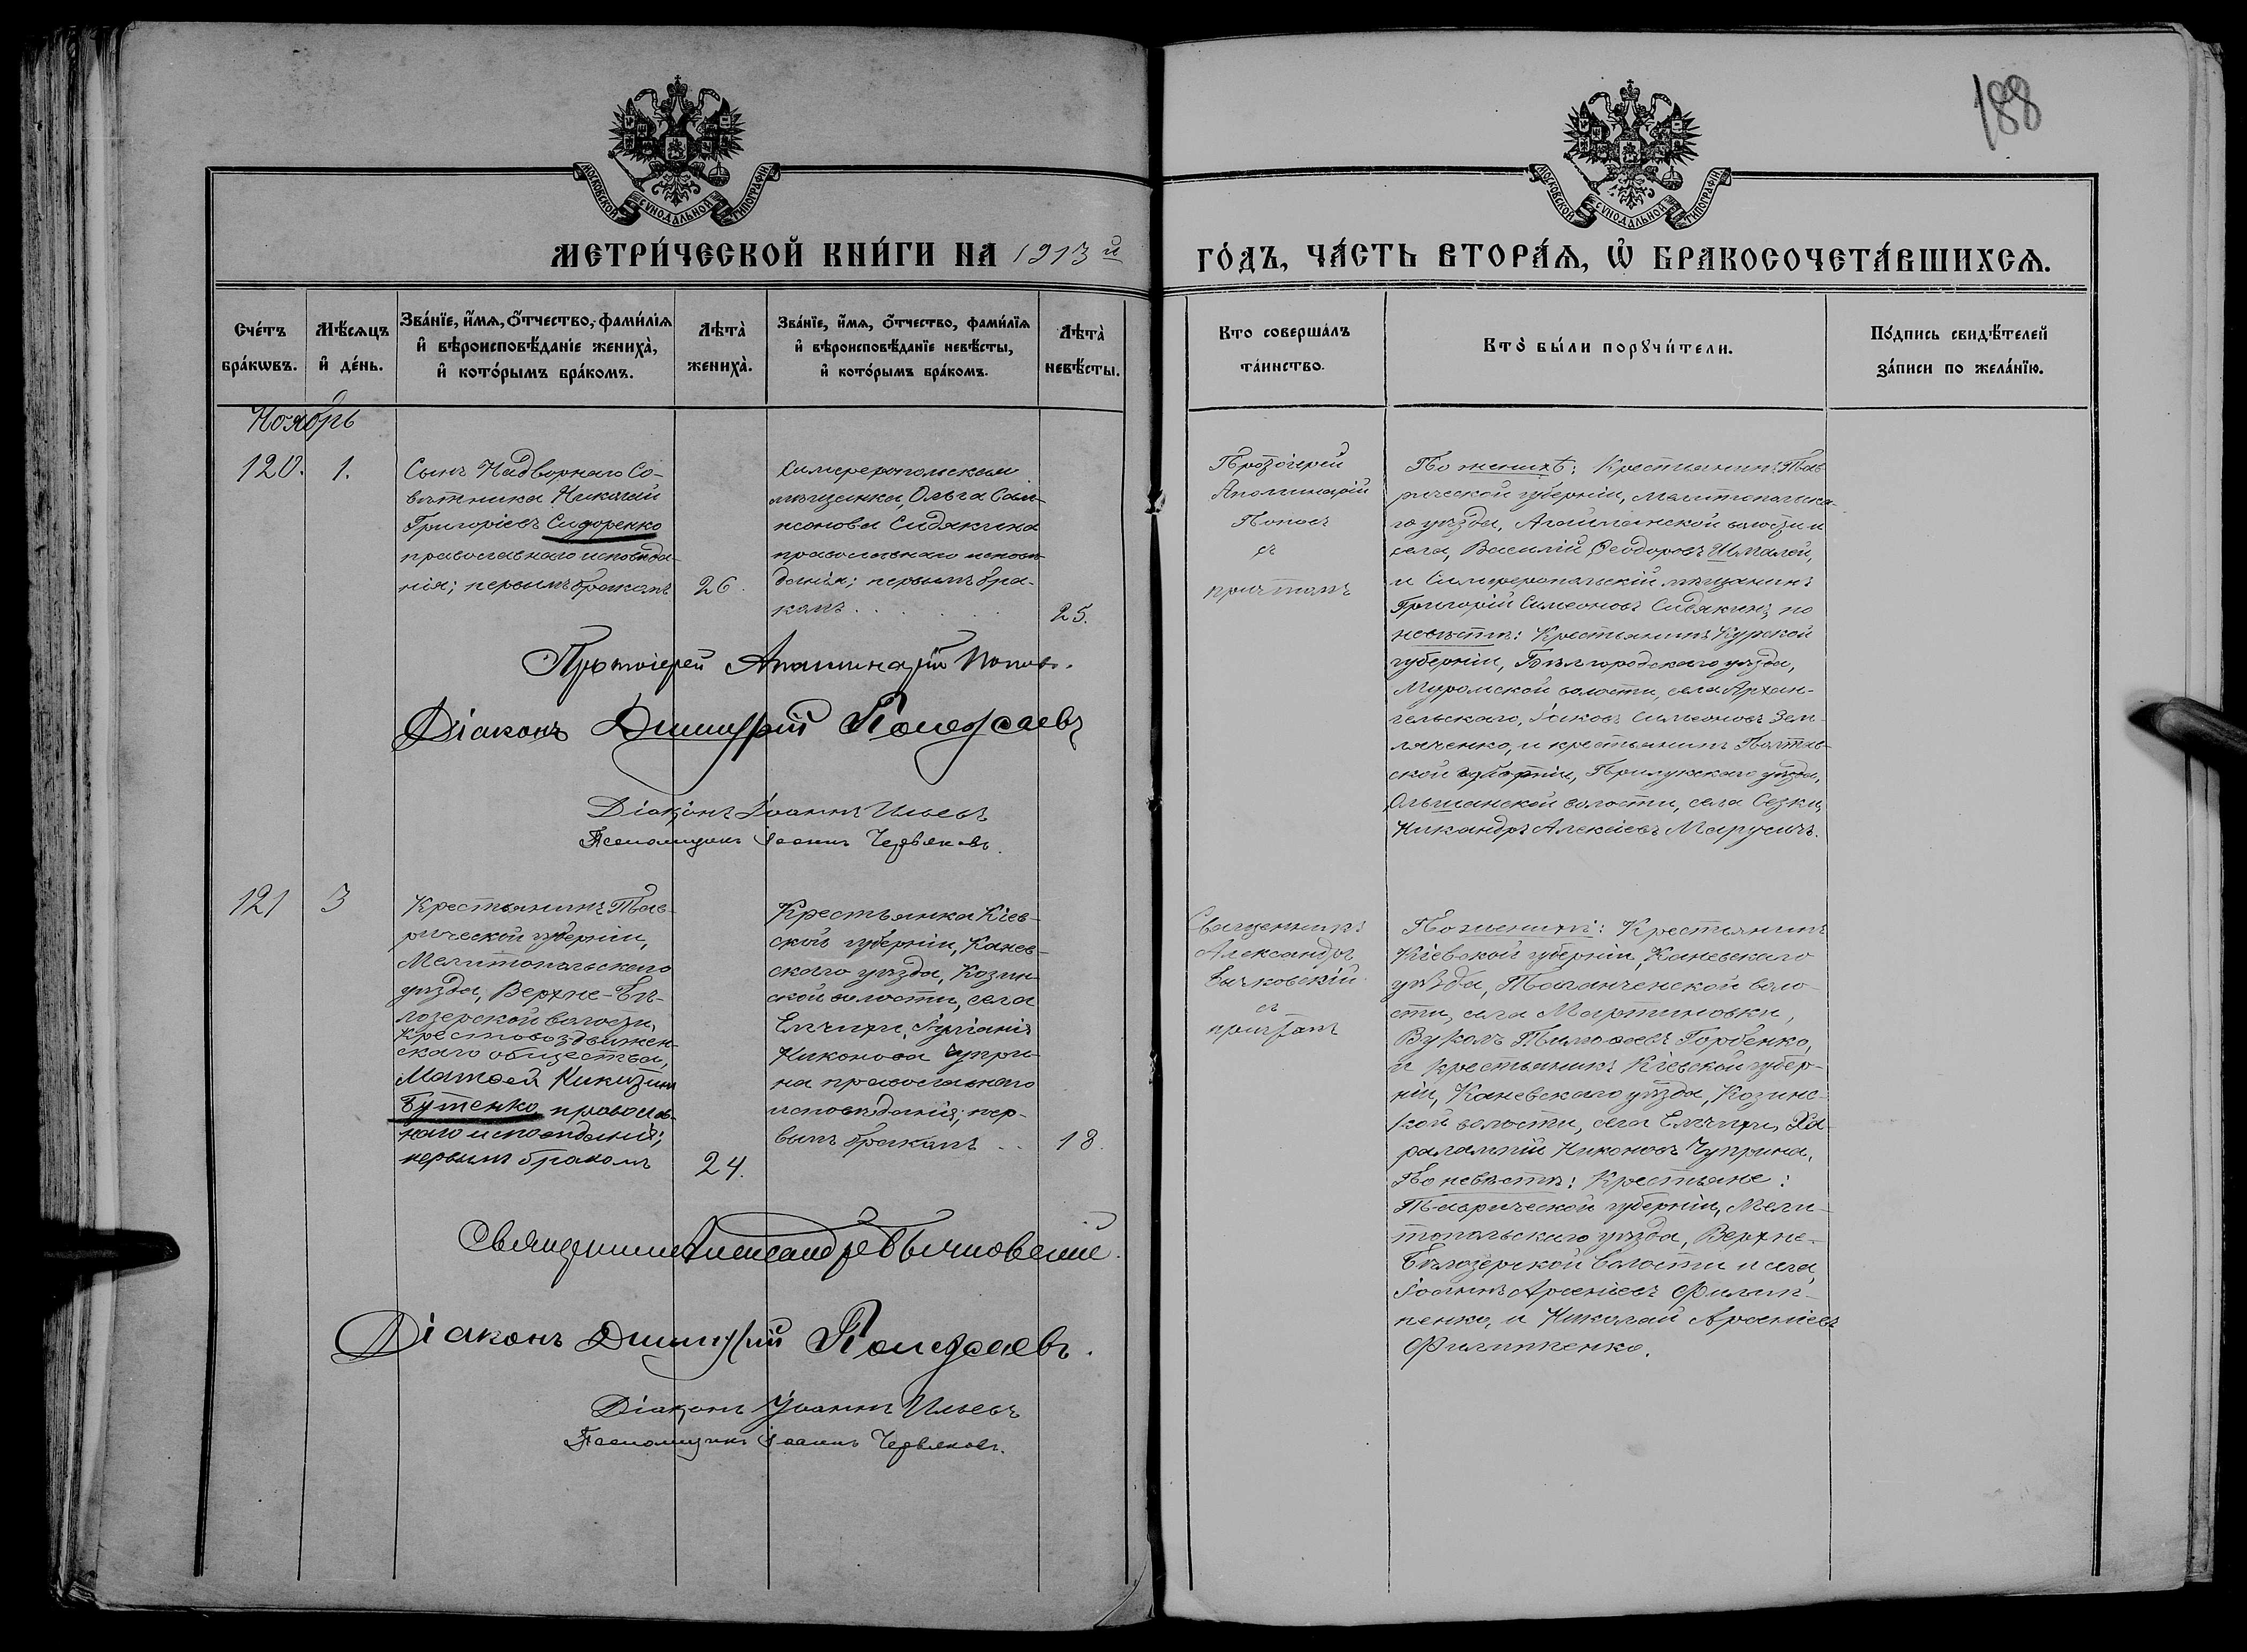 188
МОСКОВСКОЙ СУНОДАЛЬНОЙ ТИПОГРАФІИ
МОСКОВСКОЙ СУНОДАЛЬНОЙ ТИПОГРАФІИ
МЕТРИ́ЧЕСКОЙ КНИ́ГИ НА 1913 й
ГО́ДЪ, ЧА́СТЬ ВТОРА́Ѧ, Ѡ҆ БРАКОСОЧЕТА́ВШИХСѦ.
Сче́тъ
бра́кѡвъ.
Мѣ́сѧцъ
и҆ де́нь.
Зва́нїе, и҆́мѧ, ѻ҆́тчество, фами́лїѧ
и҆ вѣроисповѣ́данїе жениха̀,
и҆ кото́рымъ бра́комъ.
Лѣта̀
жениха̀.
Зва́нїе, и҆́мѧ, ѻ҆́тчество, фами́лїѧ
и҆ вѣроисповѣ́данїе невѣ́сты,
и҆ кото́рымъ бра́комъ.
Лѣта̀
невѣ́сты.
Кто соверша́лъ
та́инство.
Кто̀ бы́ли порꙋчи́тели.
По́дпись свидѣ́телей
за́писи по жела́нїю.
Ноябрь
120.
1.
Сынъ Надворнаго Со-
вѣтника Николай
Григоріевъ Сидоренко
православнаго исповѣда-
нія; первымъ бракомъ
26.
Симферопольская
мѣщанка, Ольга Сам-
псонова Сидякина
православнаго исповѣ-
данія; первымъ бра-
комъ . . . .
25.
Протоіерей
Аполинарій
Поповъ
съ
причтомъ
По женихѣ: Крестьянинъ Тав-
рической губерніи, Мелитопольска-
го уѣзда, Агайманской волости и
села, Василій Ѳеодоровъ Шмалей,
и Симферопольскій мѣщанинъ
Григорій Симеоновъ Сидякинъ, по
невѣстѣ: Крестьянинъ Курской
губерніи, Бѣлгородскаго уѣзда,
Муромской волости, села Архан-
гельскаго, Іаковъ Симеоновъ Зем-
ляченко, и крестьянинъ Полтав-
ской губерніи, Прилукскаго уѣзда,
Ольшанской волости, села Сезки,
Никандръ Алексіевъ Марусичъ.
Протоіерей Аполинарій Поповъ.
Діаконъ Димитрій Полежаевъ
Діаконъ Іоаннъ Ильевъ
Псаломщикъ Іоаннъ Червяковъ.
121
3
Крестьянинъ Тав-
рической губерніи,
Мелитопольскаго
уѣзда, Верхне-Бѣ-
лозерской волости,
Крестовоздвижен-
скаго общества,
Матѳей Никитинъ
Бутенко православ-
наго исповѣданія;
первымъ бракомъ
24.
Крестьянка Кіев-
ской губерніи, Канев-
скаго уѣзда, Козин-
ской волости, села
Емчихи, Іуліанія
Никонова Чупри-
на православнаго
исповѣданія; пер-
вымъ бракомъ . .
18.
Священникъ
Александръ
Бычковскій
съ
причтомъ
По женихѣ: Крестьянинъ
Кіевской губерніи, Каневскаго
уѣзда, Таганченской воло-
сти, села Мартиновки,
Вуколъ Тимоѳеевъ Горбенко,
и крестьянинъ Кіевской губер-
ніи, Каневскаго уѣзда, Козинс-
кой волости, села Емчихи, Ха-
ралампій Никоновъ Чуприна.
По невѣстѣ: Крестьяне:
Таврической губерніи, Мели-
топольскаго уѣзда, Верхне-
Бѣлозерской волости и села,
Іоаннъ Арсеніевъ Филип-
пенко, и Николай Арсеніевъ
Филиппенко.
Священникъ Александръ Бычковскій.
Діаконъ Димитрій Полежаевъ.
Діаконъ Іоаннъ Ильевъ
Псаломщикъ Іоаннъ Червяковъ.